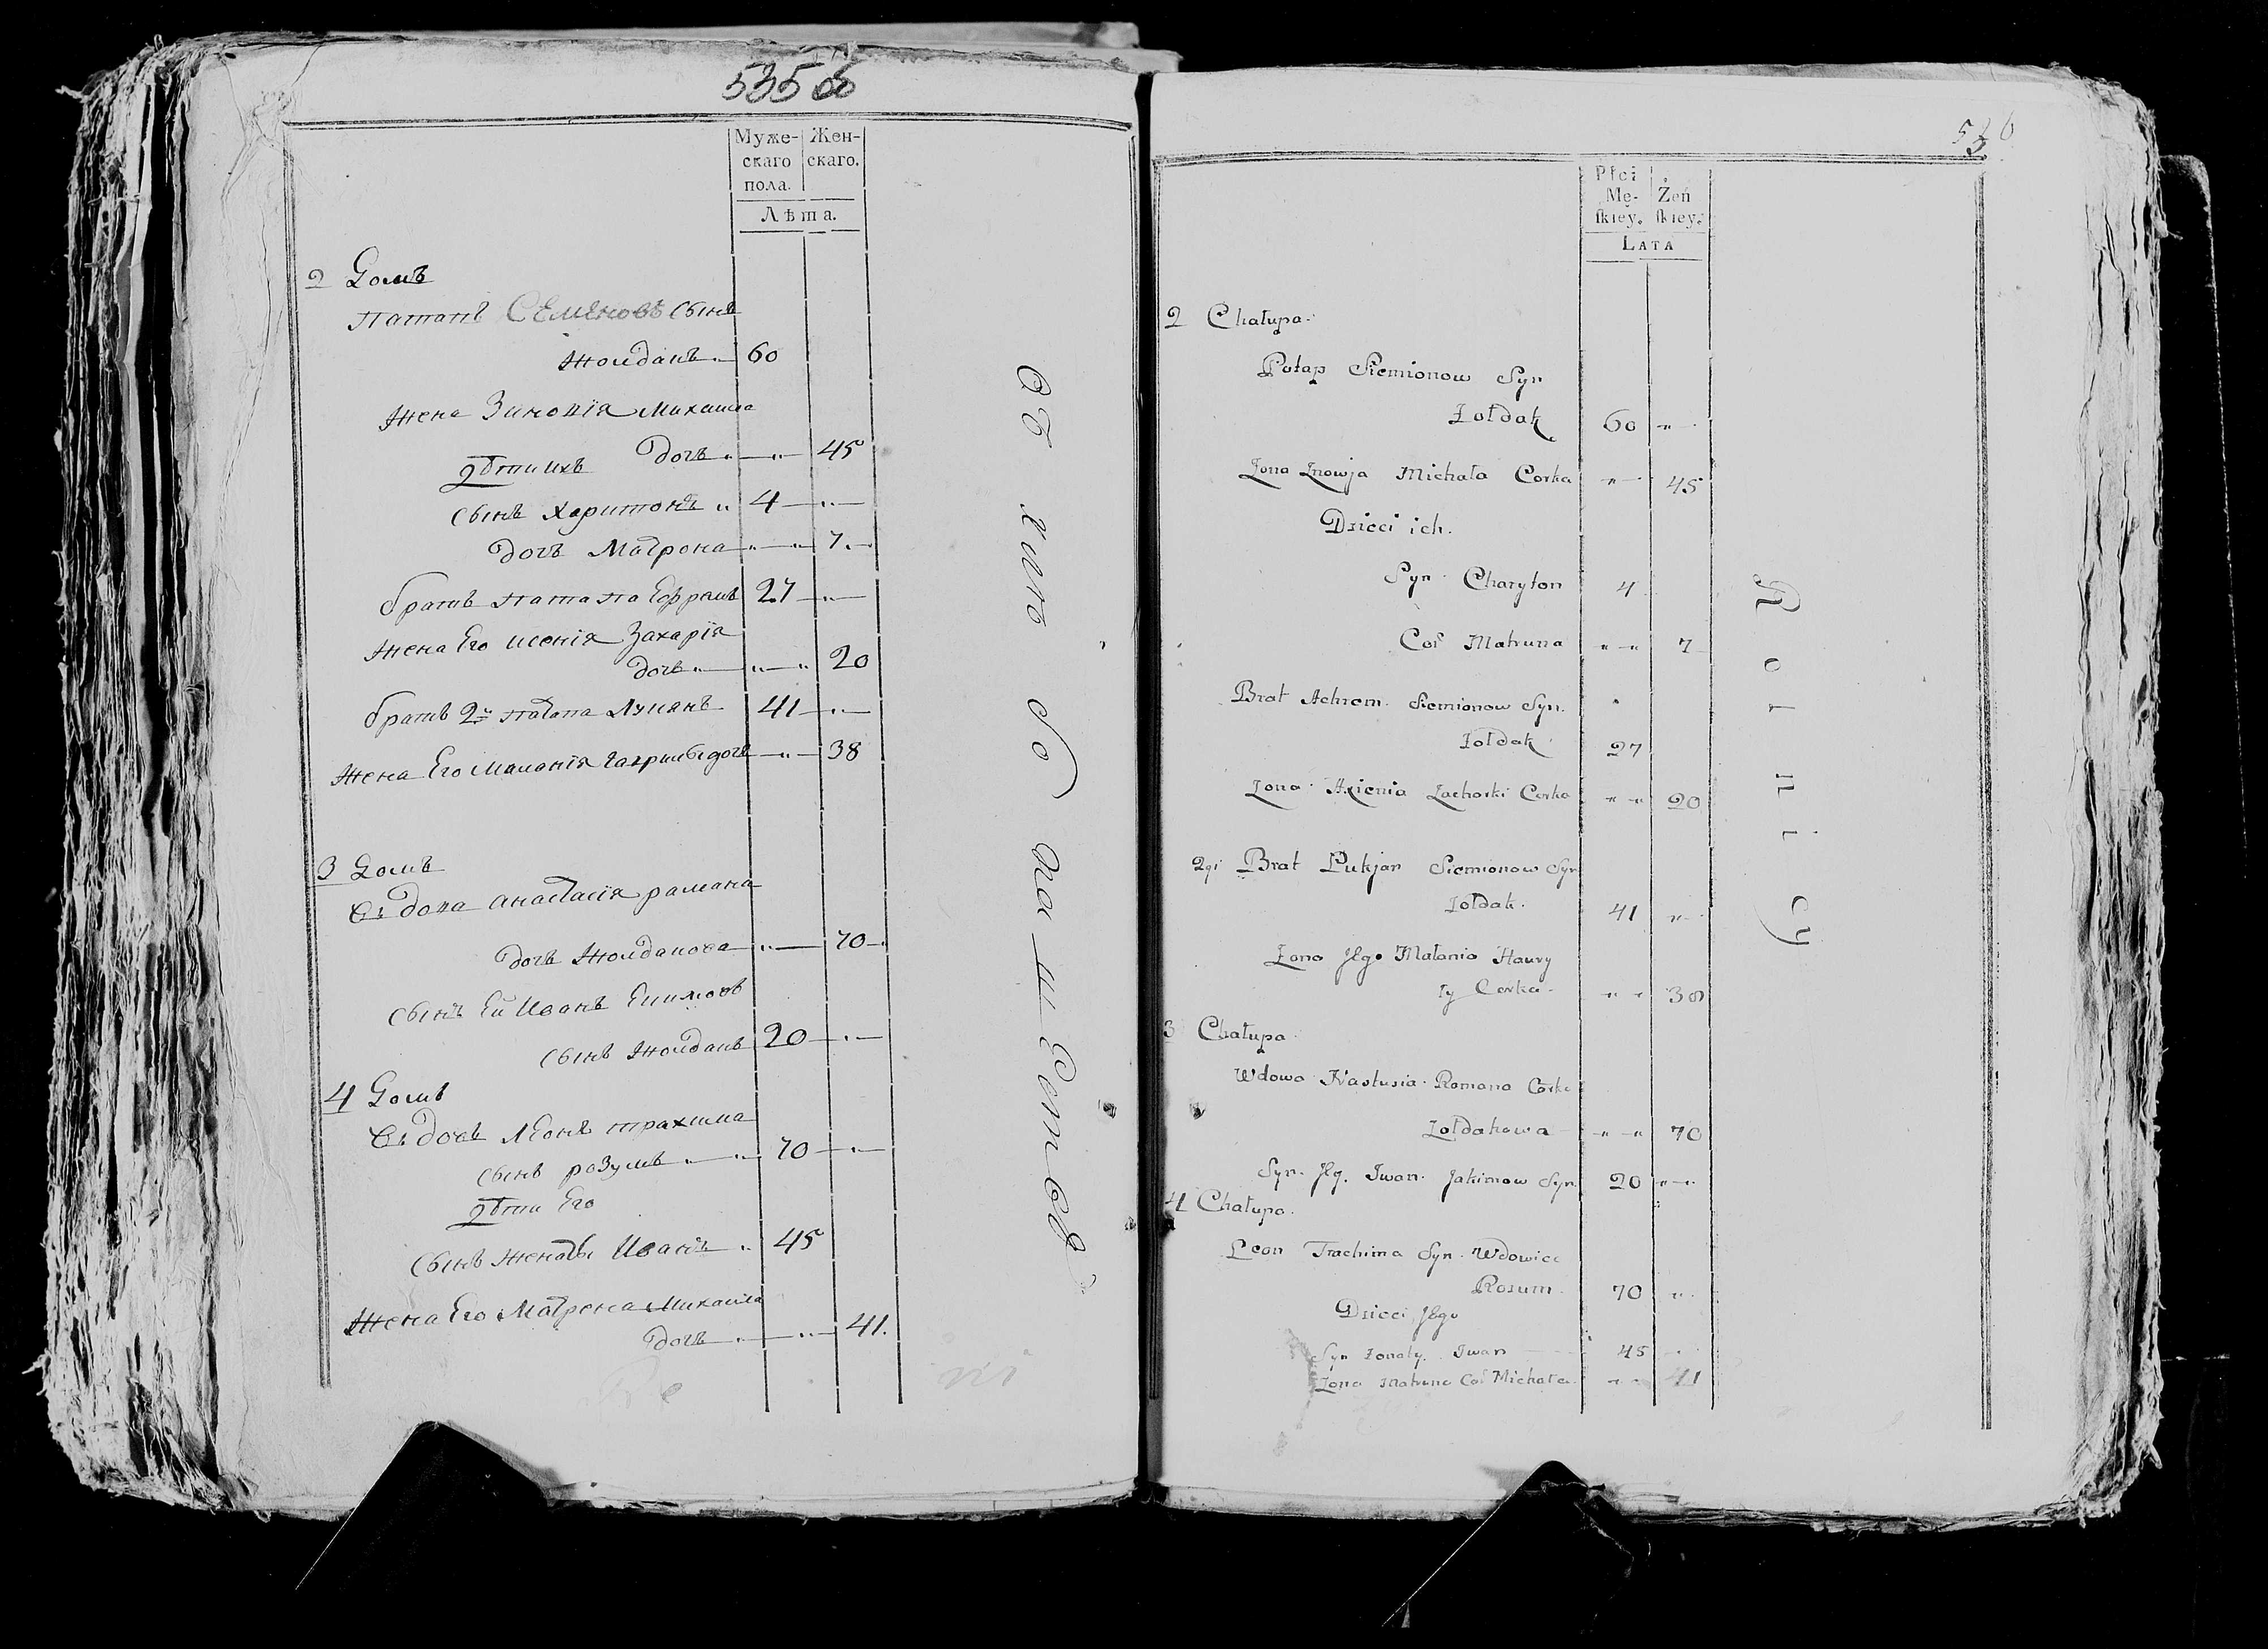 535 об
Муже- Жен-
скаго скаго.
пола.
Лѣта.
2 Домъ
Патапъ Семеновъ сынъ
Жолдакъ 60
Жена Зиновія Михаила
дочь 45
дѣти ихъ
сынъ Харитонъ 4
дочь Матрона 7
братъ Патапа Ефремъ 27
Жена Его Ксенія Захарія
дочь 20
братъ 2й Патапа Лукянъ 41
Жена Его Маланія Гаврилы дочь 38
3 Домъ
Вдова Анастасія Рамана
дочь Жолдакова 70
сынъ Ей Иванъ Екимовъ
сынъ Жолдакъ 20
4 Домъ
Вдовъ Леонъ Трахима
сынъ Розумъ 70
дѣти Его
сынъ женаты Иванъ 45
Жена Его Матрена Михаила
дочь 41.
536
Płci
Mę- Żeń
ſkiey. ſkiey.
LATA
2 Chałupa.
Potap Siemionow Syn
Żołdak 60
Żona Znowja Michała Corka 45
Dzieci ich.
Syn Charyton 4
Cor Matruna 7
Brat Achrem Siemionow Syn.
Żołdak 27
Żona Axienia Zacharki Corka 20
2gi Brat Łukjan Siemionow Syn
Żołdak. 41
Żona Jego Małania Haury
ły Corka 38
3 Chałupa
Wdowa Nastusia Romana Corka
Żołdakowa 70
Syn Jey. Iwan Jakimow Syn 20
4 Chałupa.
Leon Trachima Syn Wdowiec
Rozum 70
Dzieci Jego
Syn Żonaty Iwan 45
Żona Matruna Cor Michała 41
Rolnicy